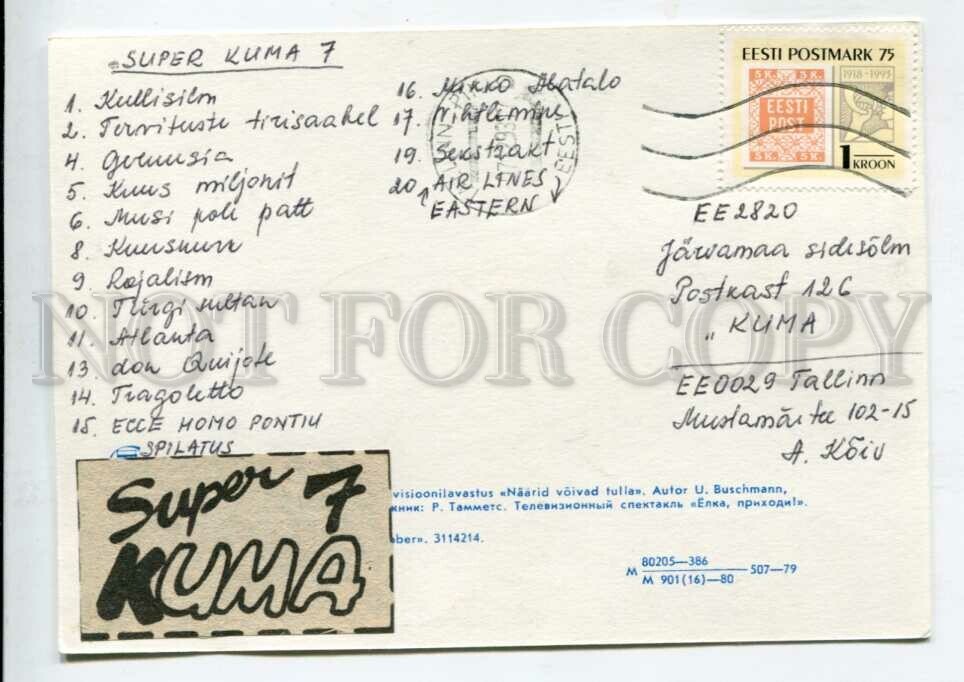 SUPER KUMA 7
1. Kullisilm
2. Tervituste tirisaabel
4. 
5. Kuus miljonit
6. Musi poli patt
8. 
9. Rojalism
10. Türgi sultan
11. Atlanta
13. don Quijote
14. Tragoletto
15. ECCE HOMO PONTIU
SPILATUS
16. Mikko Alatalo
17. 
19. Sekstrakt
20. AIR LINES
EASTERN
EESTI
EESTI POSTMARK 75
5K. 5K.
1918-1993
EESTI
POST
5K. 5K.
1 KROON
EE2820
Järvamaa sidesõlm
Postkast 126
„ KUMA
EE0029 Tallinn
Mustamäe tee 102-15
A. Kõiv
NOT FOR COPY
Super 7
KUMA
visioonilavastus «Näärid võivad tulla». Autor U. Buschmann,
жник: Р. Тамметс. Телевизионный спектакль «Ёлка, приходи!».
ber». 3114214.
М 80205—386
М 901(16)—80 507—79